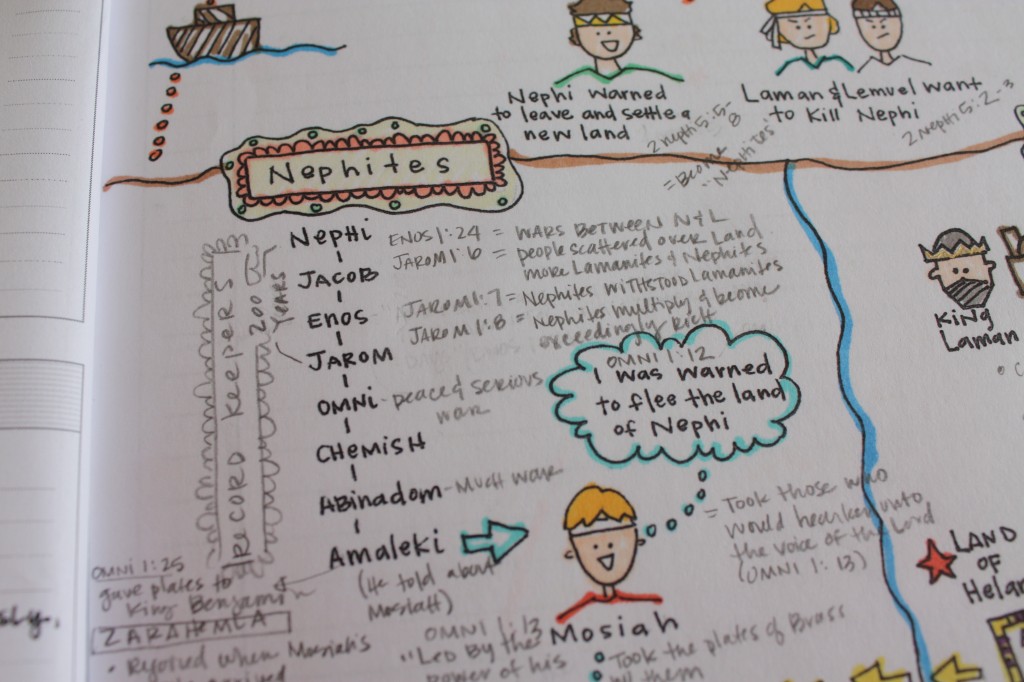 Nephi warned
to leave and settle a
new land
Laman & Lemuel want
to Kill Nephi
2 Neph 5:5-
8
= Become
"Nephites"
2 Nephi 5:2-3
Nephites
RECORD KEEPERS
200
Years
NEPHI
JACOB
ENOS
JAROM
OMNI - peace & serious
war
CHEMISH
ABINADOM - Much war
AMALEKI
(He told about
Mosiah)
ENOS 1:24 = WARS BETWEEN N & L
JAROM 1:6 = people scattered over Land
more Lamanites & Nephites
JAROM 1:7 = Nephites WITHSTOOD Lamanites
JAROM 1:8 = Nephites multiply & become
exceedingly Rich
OMNI 1:12
I was warned
to flee the land
of Nephi
= Took those who
would hearken unto
the voice of the Lord
(OMNI 1:13)
KING
Laman
LAND
OF
Helam
OMNI 1:25
gave plates to
King Benjamin
ZARAHEMLA
• Rejoiced when Mosiah's
Mosiah
OMNI 1:13
"Led By the
power of his
Took the plates of Brass
w/ them